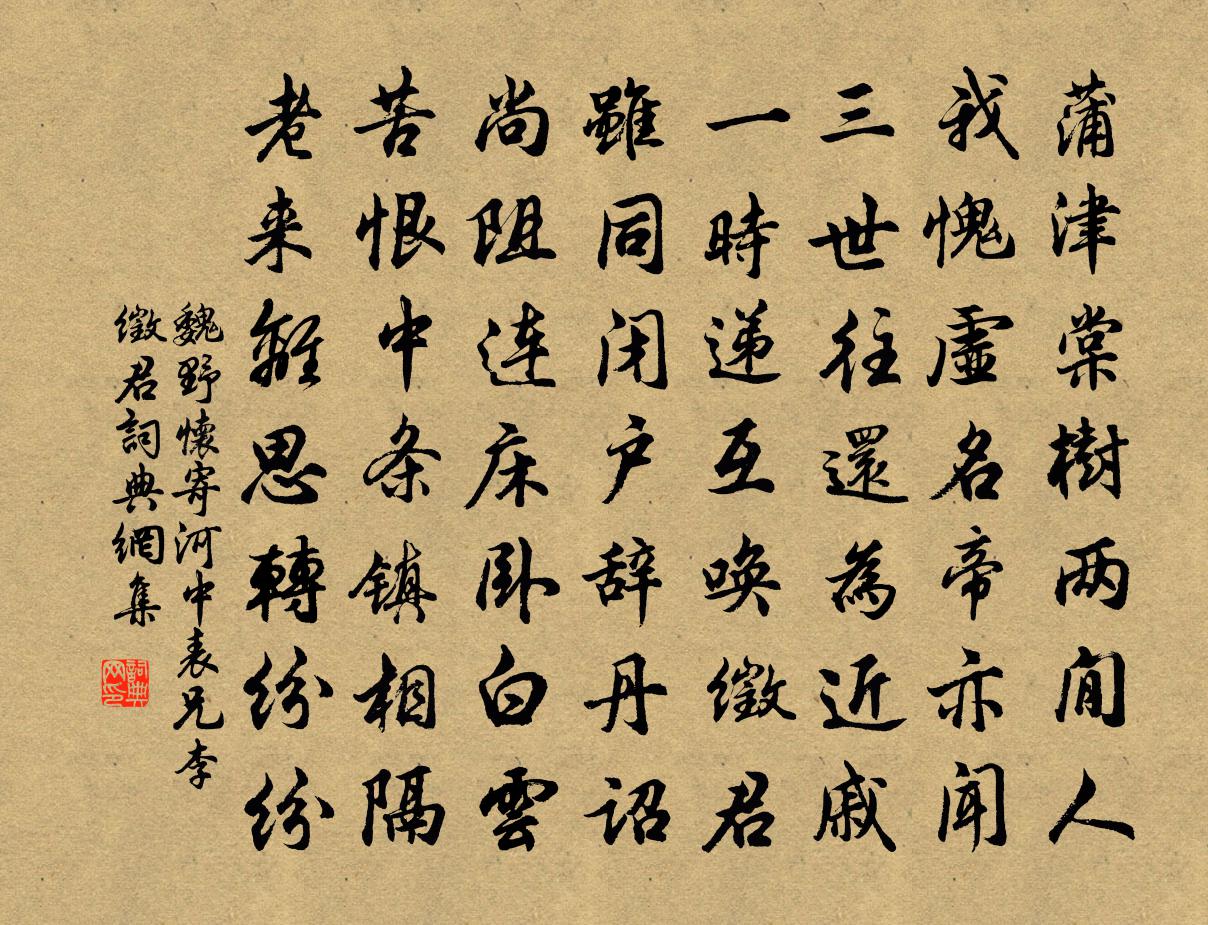 蒲津棠樹两閒人
我愧虛名帝亦聞
三世往還為近戚
一時递互唤徵君
雖同闭户辞丹诏
尚阻连床卧白雲
苦恨中条镇相隔
老来離思轉纷纷
魏野懷寄河中表兄李
徵君詞典網集
詞典网印